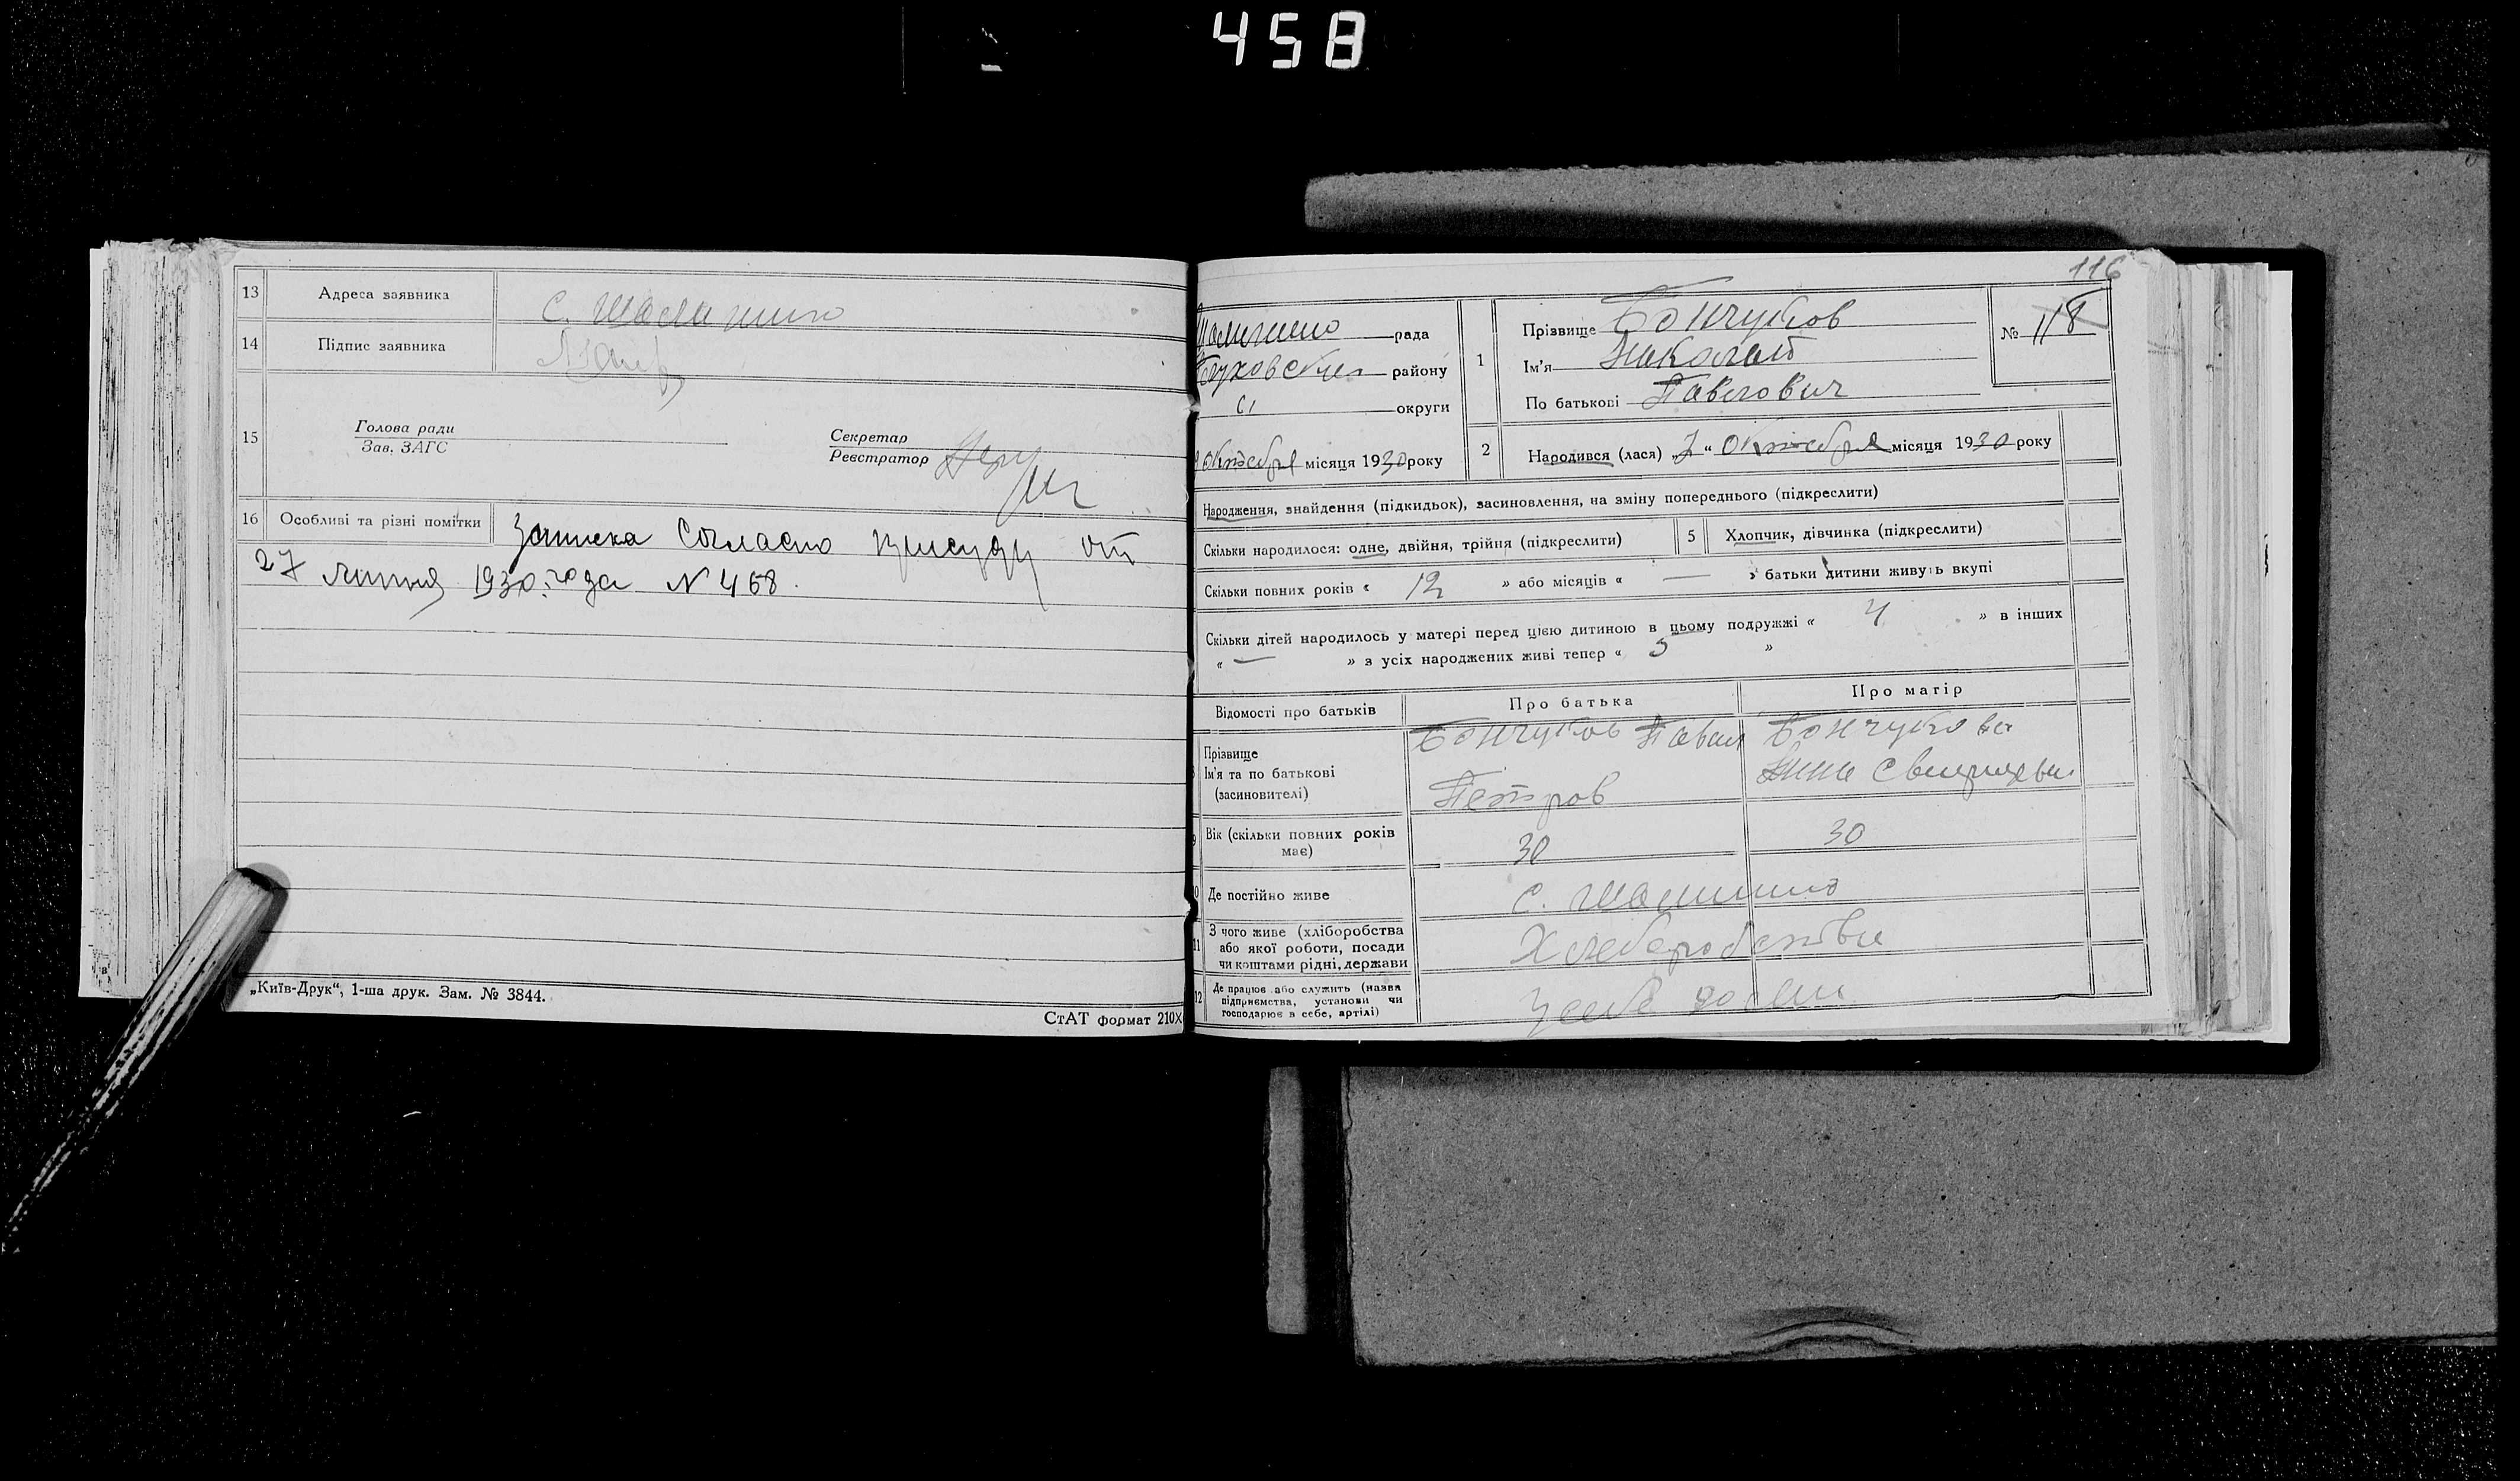 458
13 Адреса заявника с. Шалигино
14 Підпис заявника
15 Голова ради
Зав. ЗАГС
Секретар
Реєстратор
16 Особливі та різні помітки Записка согласно присуду от
27 липня 1930 года N 468.
„Київ-Друк“, 1-ша друк. Зам. № 3844.
СтАТ формат 210х
116
Шалигино рада
Глуховський району
округи
Октебря місяця 1930 року
1 Прізвище Бончуков
Ім'я Николай
По батькові Павлович
№ 118
2 Народився (лася) „7“ Октебря місяця 1930 року
Народження, знайдення (підкидьок), засиновлення, на зміну попереднього (підкреслити)
Скільки народилося: одне, двійня, трійня (підкреслити)
5 Хлопчик, дівчинка (підкреслити)
Скільки повних років « 12 » або місяців « — » батьки дитини живуть вкупі
Скільки дітей народилось у матері перед цією дитиною в цьому подружжі « 4 » в інших
« — » з усіх народжених живі тепер « 5 »
Відомості про батьків
Про батька
Про матір
Прізвище
Ім'я та по батькові
(засиновителі)
Бончуков Павел
Петров
Бончукова
9 Вік (скільки повних років має) 30 30
10 Де постійно живе с. Шалигино
11 З чого живе (хліборобства
або якої роботи, посади
чи коштами рідні, держави
Хлеборобства
12 Де працює або служить (назва
підприємства, установи чи
господарює в себе, артілі)
У себе дома